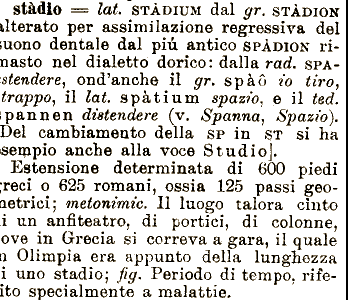 stàdio = lat. STÀDIUM dal gr. STÀDION
alterato per assimilazione regressiva del
suono dentale dal piú antico SPÀDION ri-
masto nel dialetto dorico: dalla rad. SPA-
stendere, ond'anche il gr. spàô io tiro,
strappo, il lat. spàtium spazio, e il ted.
spannen distendere (v. Spanna, Spazio).
[Del cambiamento della SP in ST si ha
esempio anche alla voce Studio].
Estensione determinata di 600 piedi
greci o 625 romani, ossia 125 passi geo-
metrici; metonimic. Il luogo talora cinto
di un anfiteatro, di portici, di colonne,
ove in Grecia si correva a gara, il quale
in Olimpia era appunto della lunghezza
di uno stadio; fig. Periodo di tempo, rife-
rito specialmente a malattie.